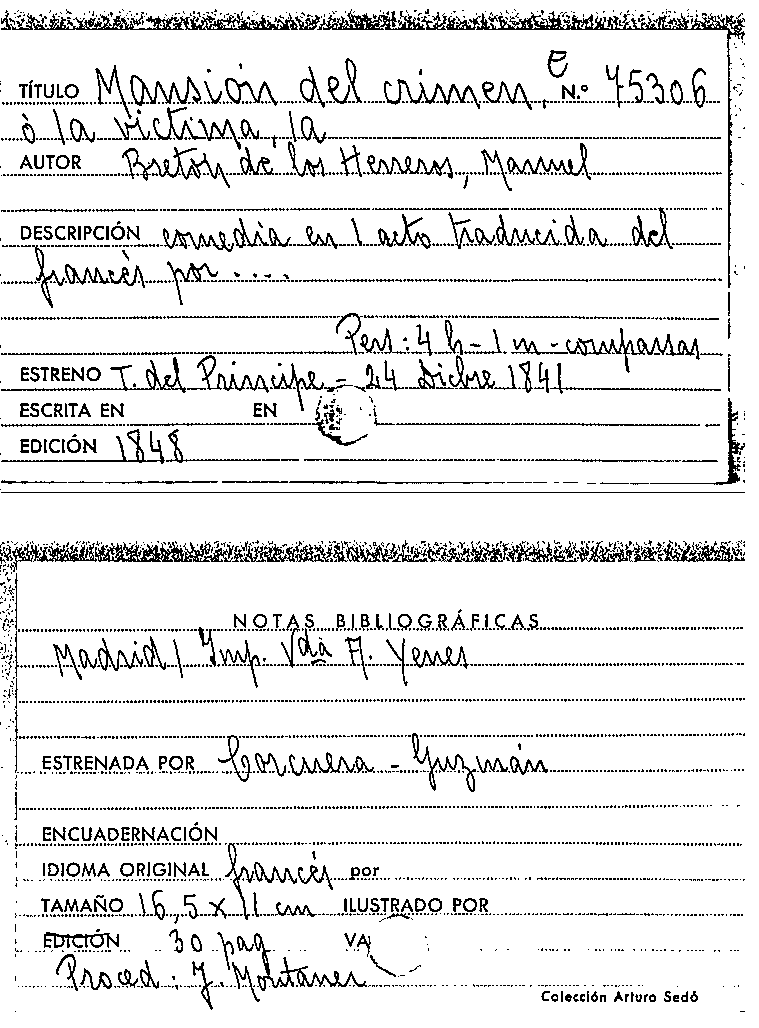 TÍTULO Mansión del crimen, e N.º 75306
ò la victima, la
AUTOR Breton de los Herreros, Manuel
DESCRIPCIÓN comedia en 1 acto traducida del
francés por ....
Pers: 4 h - 1 m - comparsas
ESTRENO T. del Principe - 24 Dicbre 1841
ESCRITA EN EN
EDICIÓN 1848
NOTAS BIBLIOGRÁFICAS
Madrid / Imp. Vda A. Yenes
ESTRENADA POR Corcuera - Guzmán
ENCUADERNACIÓN
IDIOMA ORIGINAL francés por
TAMAÑO 16,5 x 11 cm ILUSTRADO POR
EDICIÓN 30 pag VA
Proced: J. Montaner
Colección Arturo Sedó